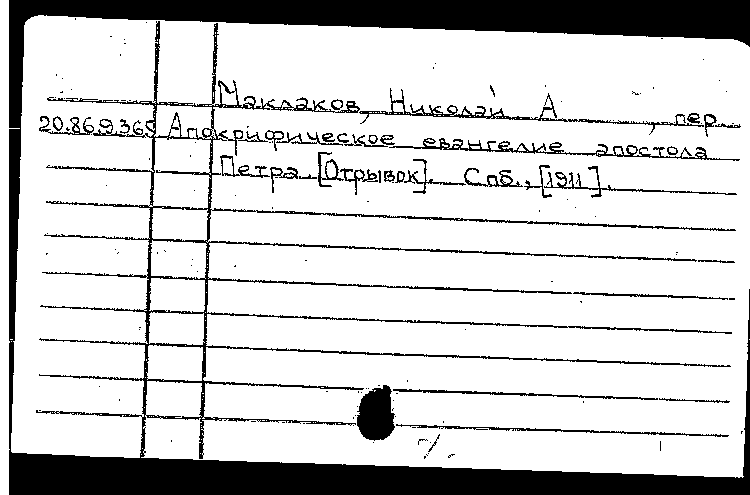 Маклаков, Николай А , пер
20.86.9.365 Апокрифическое евангелие апостола
Петра. [Отрывок]. Спб., [1911].